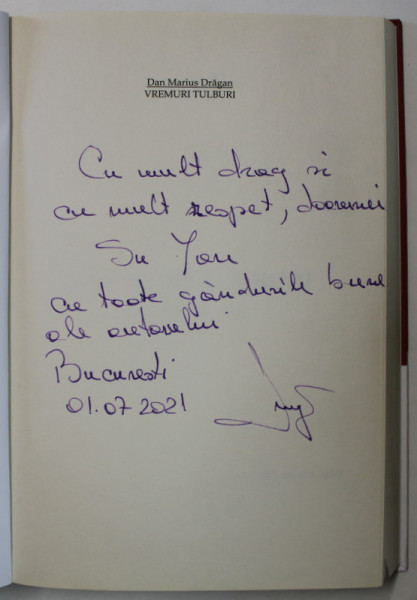 Dan Marius Drăgan
VREMURI TULBURI
Cu mult drag si
cu mult respet, doamnei
Su Yan
cu toate gândurile bune
ale autorului
Bucuresti
01.07 2021